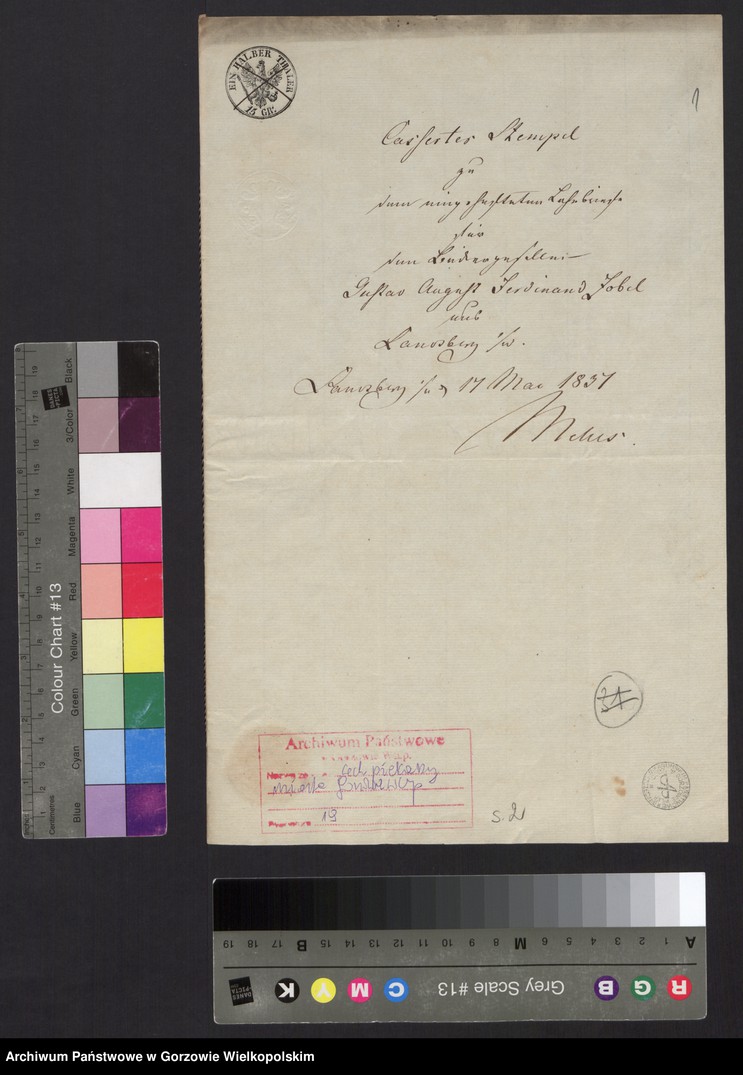 EIN HALBER THALER
15 GR:
1
Cassirter Stempel
zu
dem eingehefteten Lehrbriefe
für
den
Gustav August Ferdinand Zobel
aus
Landsberg a/W.
Landsberg a/W 17 Mai 1837
Archiwum Państwowe
cech piekarzy
miasta Gorzów Wlkp
19
s. 2
Colour Chart #13
Blue
Cyan
Green
Yellow
Red
Magenta
White
3/Color
Black
Centimetres
1 2 3 4 5 6 7 8 9 10 11 12 13 14 15 16 17 18 19
DANES
-PICTA
R G B
Grey Scale #13
C M Y K
A 1 2 3 4 5 6 M 8 9 10 11 12 13 14 15 B 17 18 19
DANES
-PICTA
Archiwum Państwowe w Gorzowie Wielkopolskim